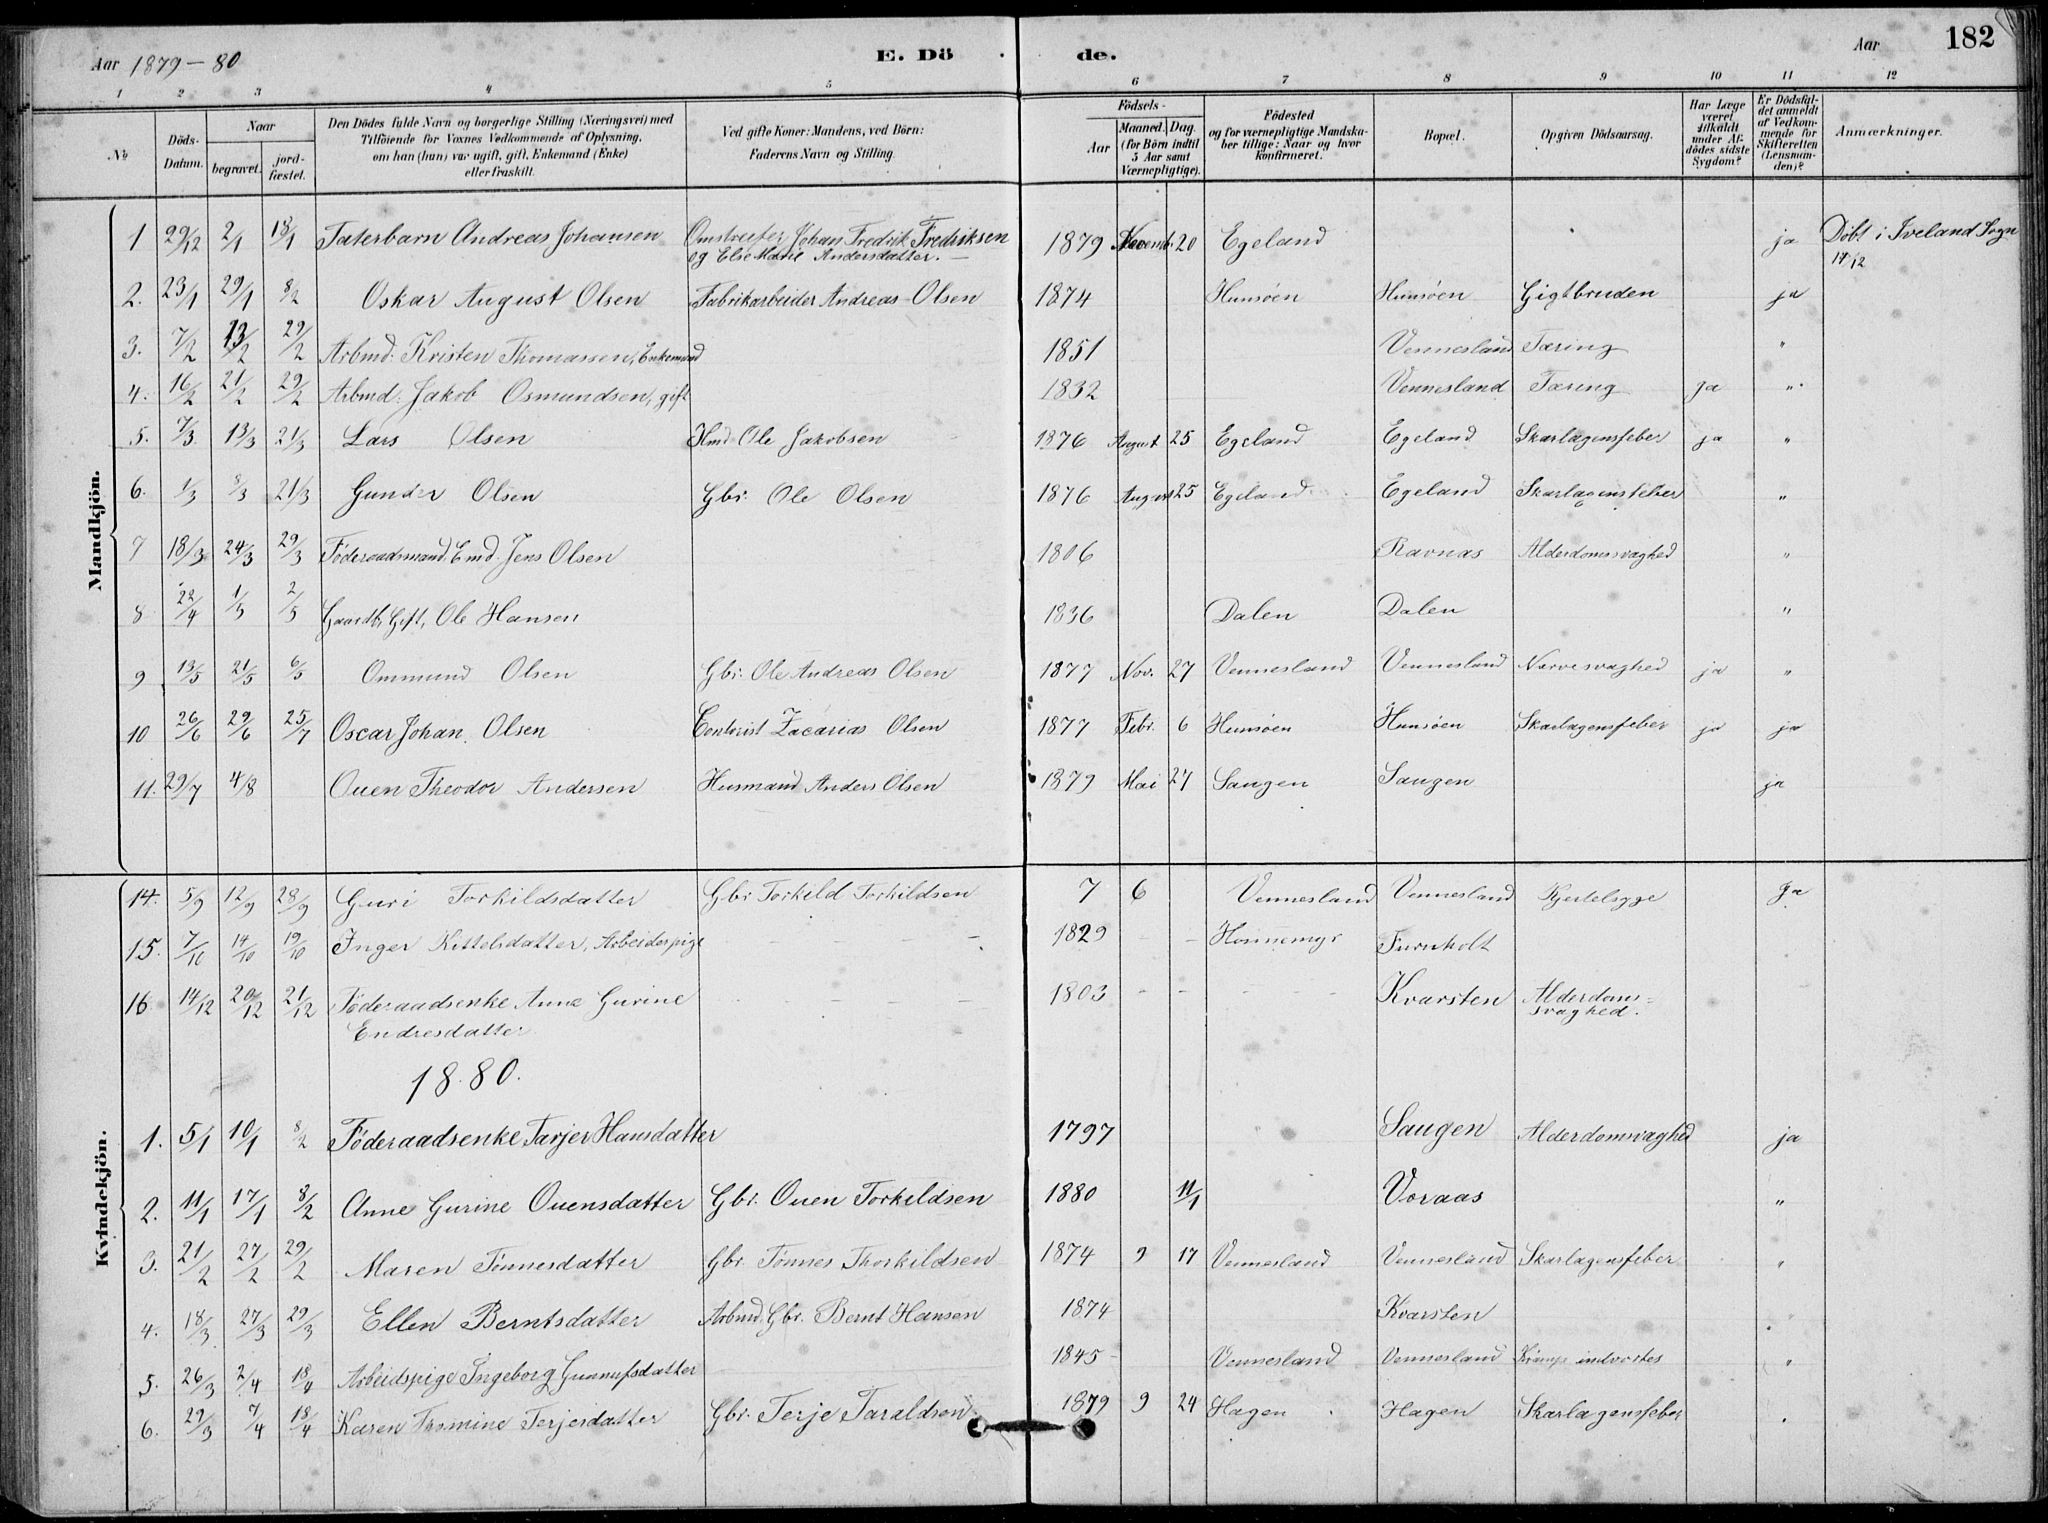 182
Aar 1879-80 E. Dö de. Aar
1 2 3 4 5 6 7 8 9 10 11 12
No Döds-Datum. Naar begravet. jordfæstet. Den Dödes fulde Navn og borgerlige Stilling (Næringsvei) med Tilföiende for Voxnes Vedkommende af Oplysning, om han (hun) var ugift, gift, Enkemand (Enke) eller fraskilt. Ved gifte Koner: Mandens, ved Börn: Faderens Navn og Stilling. Födsels- Aar Maaned. Dag. (for Börn indtil 5 Aar samt Værnepligtige). Födested og for værnepligtige Mandskaber tillige: Naar og hvor Konfirmeret. Bopæl. Opgiven Dödsaarsag. Har Læge været tilkaldt under Afdödes sidste Sygdom? Er Dödsfaldet anmeldt af Vedkommende for Skifteretten (Lensmanden)? Anmærkninger.
Mandkjön.
1 29/12 2/1 18/1 Taterbarn Andreas Johansen Omstreifer Johan Fredrik Fredriksen 1879 Novemb. 20 Egeland ja Döbt i Iveland Sogn
og Else Marie Andersdatter. 14/12
2. 23/1 29/1 8/2 Oskar August Olsen Fabrikarbeider Andreas Olsen 1874 Hunsöen Hunsöen Gigtbruden ja
3. 7/2 13/2 29/2 Arbmd. Kristen Thomassen, Enkemand 1851 Vennesland Tæring "
4. 16/2 21/2 29/2 Arbmd. Jakob Osmundsen, gift 1832 Vennesland Tæring ja "
5. 7/3 13/3 21/3 Lars Olsen Hmd Ole Jakobsen 1876 August 25 Egeland Egeland Skarlagensfeber ja "
6. 1/3 8/3 21/3 Gunder Olsen Gbr. Ole Olsen 1876 August 25 Egeland Egeland Skarlagensfeber "
7 18/3 24/3 29/3 Föderaadsmand, Emd. Jens Olsen 1806 Ravnas Alderdomssvaghed "
8 22/4 1/5 2/5 Gaardb, Gift, Ole Hansen 1836 Dalen Dalen "
9 13/5 21/5 6/5 Ommund Olsen Gbr. Ole Andreas Olsen 1877 Nov. 27 Vennesland Vennesland Nervesvaghed ja "
10 26/6 29/6 25/7 Oscar Johan Olsen Contorist Zacarias Olsen 1877 Febr. 6 Hunsöen Hunsöen Skarlagensfeber ja ja
11. 29/7 4/8 Ouen Theodor Andersen Husmand Anders Olsen 1879 Mai 27 Saugen Saugen ja
Kvindekjön.
14. 5/9 12/9 28/9 Guri Torkildsdatter Gbr Torkild Torkildsen 7 6 Vennesland Vennesland Kjertelsyge Ja
15. 7/10 14/10 19/10 Inger Kittelsdatter, Arbeiderpige 1829 Honnemyr Furuholt
16 14/12 20/12 21/12 Föderaadsenke Anne Gurine 1803 Kvarsten Alderdoms-
Endresdatter svaghed.
18.80.
1. 5/1 10/1 8/2 Föderaadsenke Tarjer Hansdatter 1797 Saugen Alderdomsvaghed ja
2. 11/1 17/1 8/2 Anne Gurine Ouensdatter Gbr. Ouen Torkildsen 1880 11/1 Voraas "
3. 21/2 27/2 29/2 Maren Tönnesdatter Gbr. Tönnes Thorkildsen 1874 9 17 Vennesland Vennesland Skarlagensfeber "
4. 18/3 27/3 29/3 Ellen Berntsdatter Arbmd. Gbr. Bernt Hansen 1874 Kvarsten "
5. 26/3 2/4 18/4 Arbeidspige Ingeborg Gunnufsdatter 1845 Vennesland Vennesland Krampe indvortes "
6. 29/3 7/4 18/4 Karen Thomine Terjesdatter Gbr. Terje Taraldsen 1879 9 24 Hagen Hagen Skarlagensfeber "